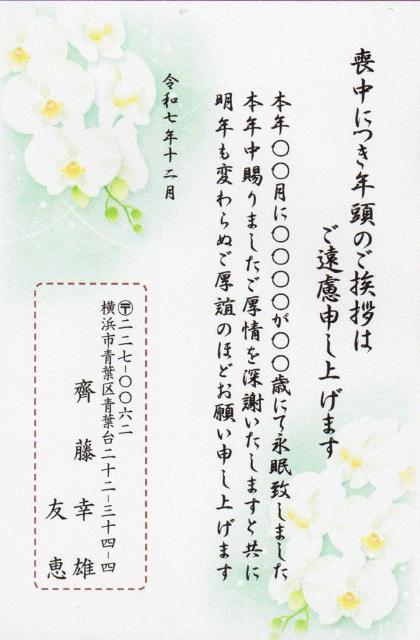 喪中につき年頭のご挨拶は
ご遠慮申し上げます
本年〇〇月に〇〇〇〇が〇〇歳にて永眠致しました
本年中賜りましたご厚情を深謝いたしますと共に
明年も変わらぬご厚誼のほどお願い申し上げます
令和七年十二月
〒二二七-〇〇六二
横浜市青葉区青葉台二十二-三十四-四
齊藤幸雄
友恵